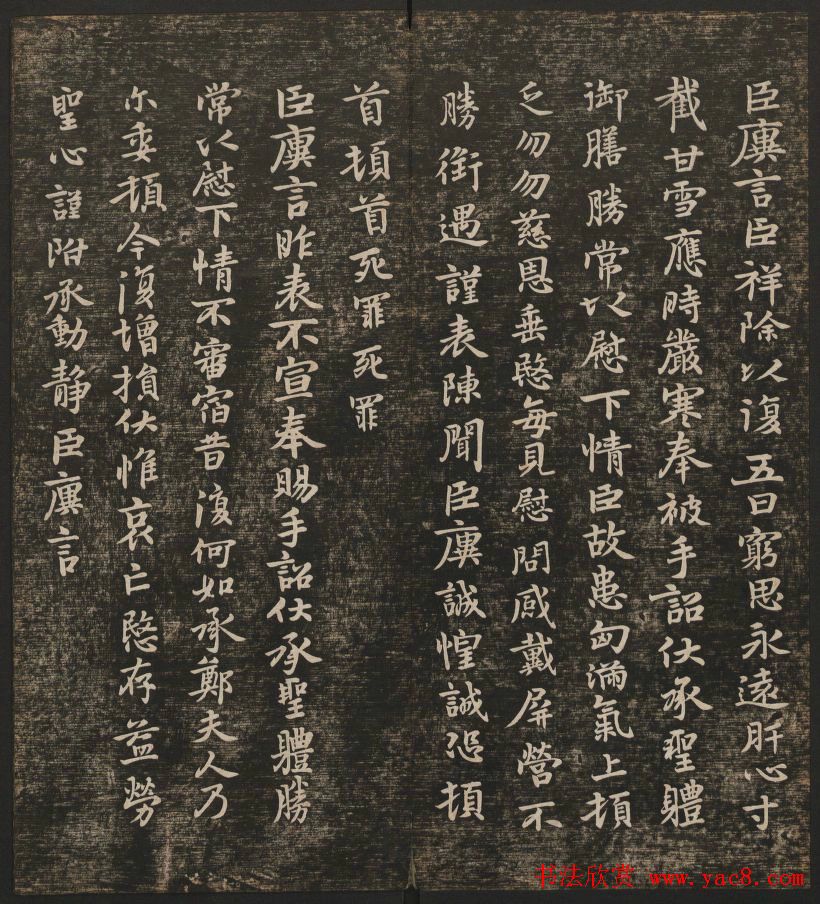 臣廙言臣祥除以復五日窮思永遠肝心寸
截甘雪應時嚴寒奉被手詔伏承聖體
御膳勝常以慰下情臣故患匈滿氣上頓
乏勿勿慈恩垂愍每見慰問感戴屏營不
勝銜遇謹表陳聞臣廙誠惶誠恐頓
首頓首死罪死罪
臣廙言昨表不宣奉賜手詔伏承聖體勝
常以慰下情不審宿昔復何如承鄭夫人乃
尒委頓今復增損伏惟哀亡愍存益勞
聖心謹附承動静臣廙言
书法欣赏 www.yac8.com